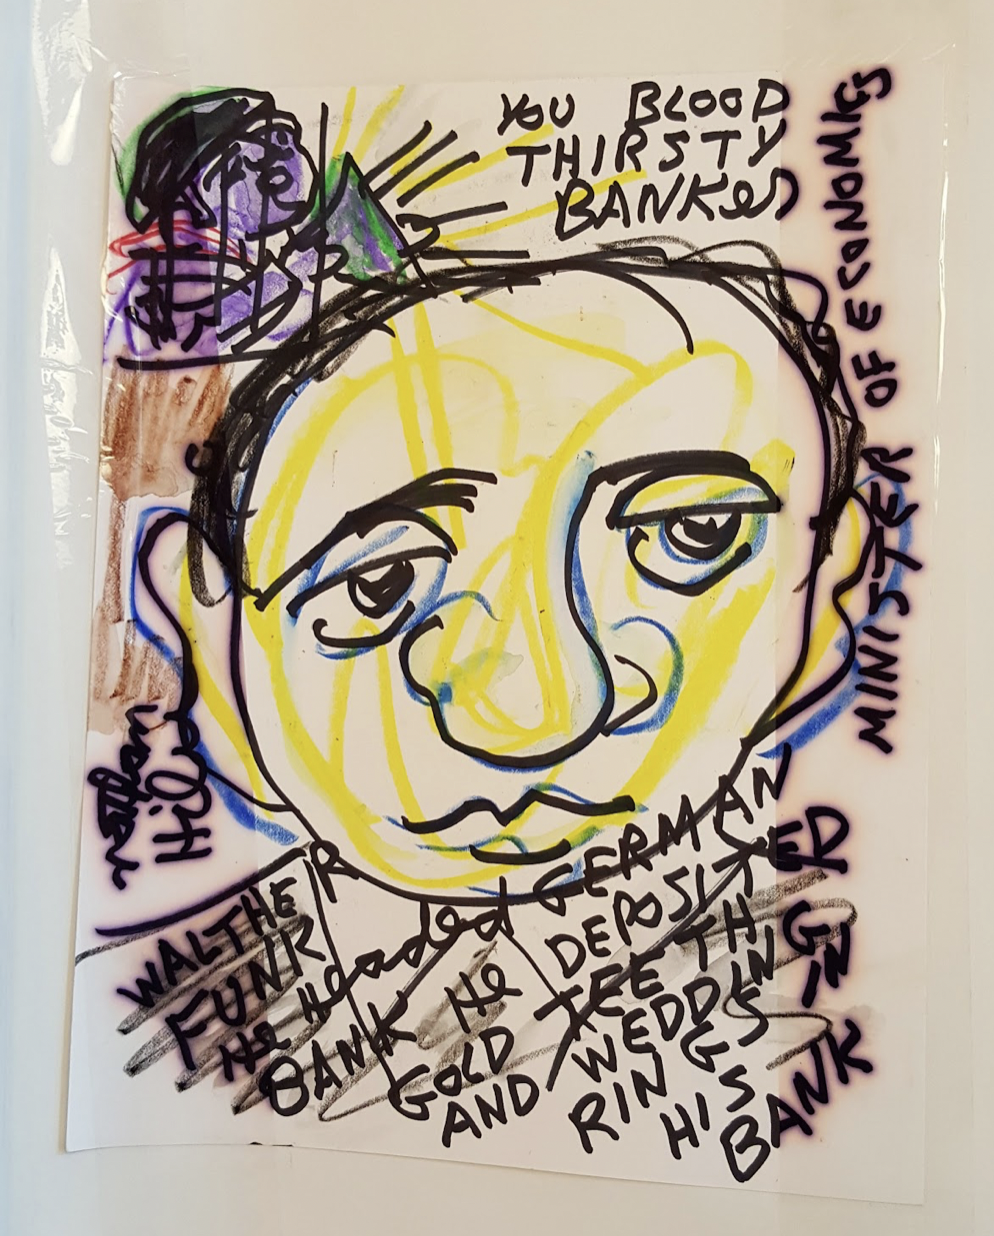 YOU BLOOD
THIRSTY
BANKeR
MINISTER OF ECONOMICS
Nathan
Hil
WALTHER
FUNK
He Headed GERMAN
BANK He DEPOSITED
GOLD TEETH
AND WEDDING
RINGS IN
HIS
BANK